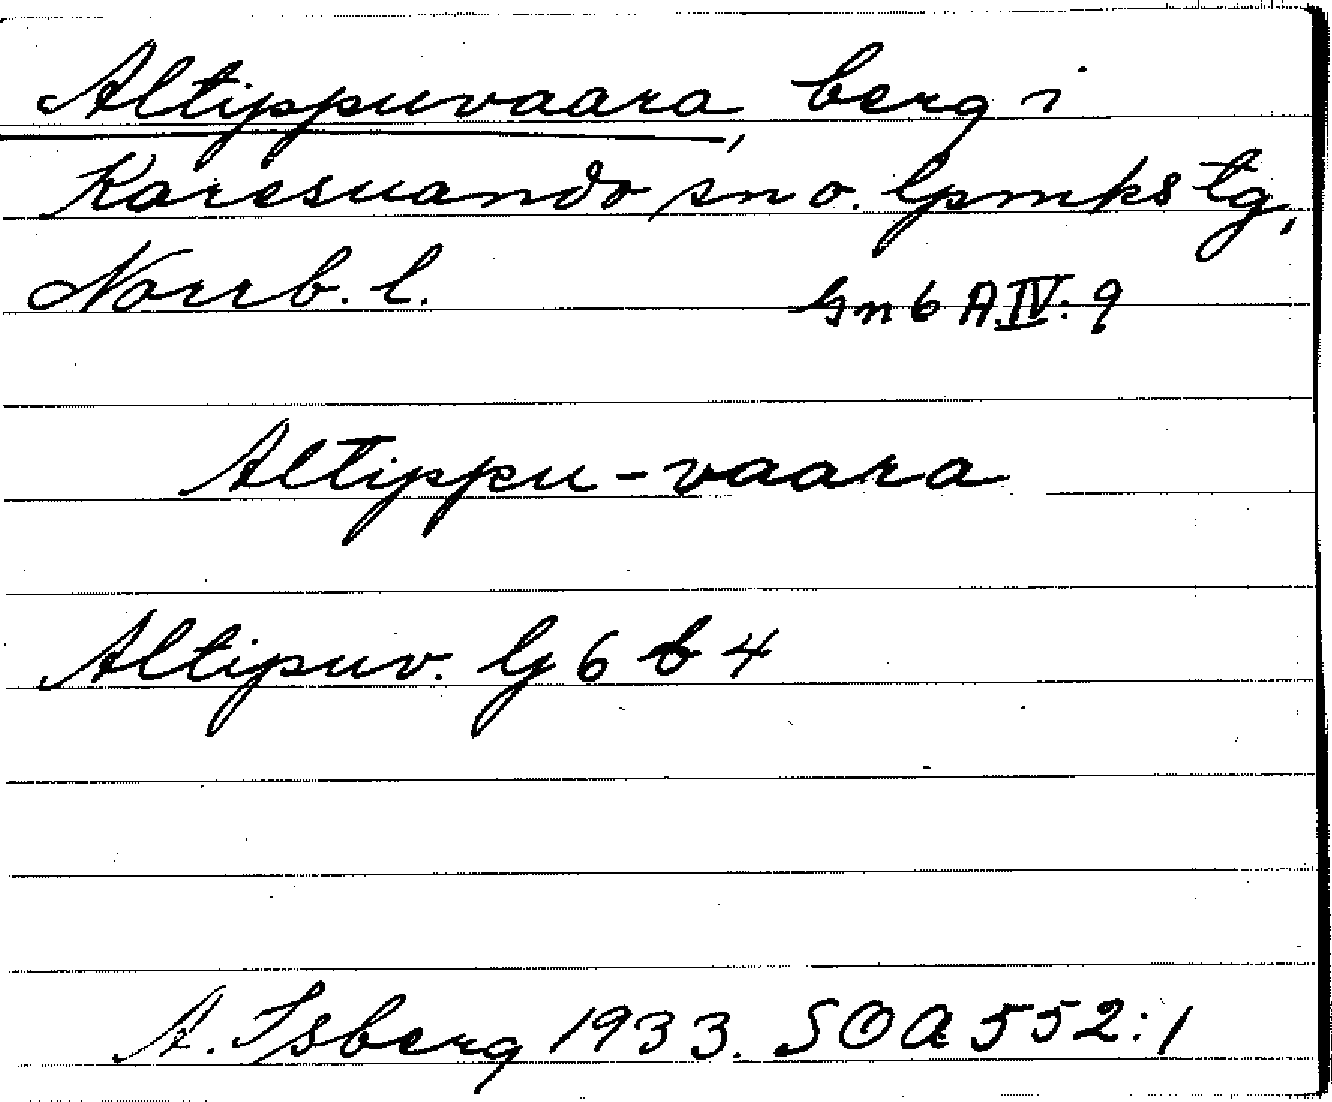 Altippuvaara, berg i
Karesuando sn o. lpmks tg,
Norrb. l.
Gn 6 A.IV: 9
Altippu-vaara
Altipuv. G 6 b 4
A. Isberg 1933. SOA 552:1